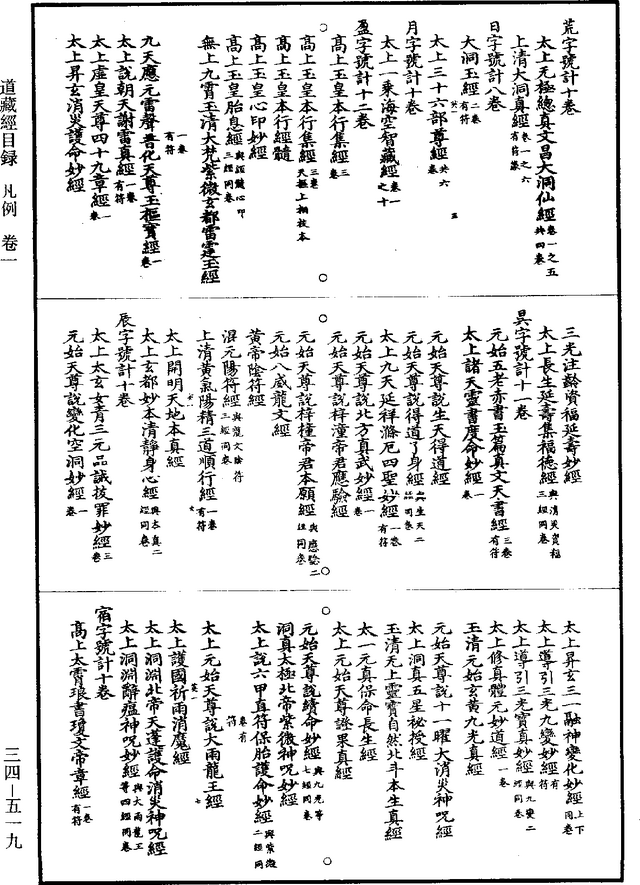 道藏經目録 凡例 卷一
三四—五一九
荒字號計十卷
太上无極總真文昌大洞仙經 卷一之五 共四卷
上清大洞真經 卷一之六 有符籙
日字號計八卷
大洞玉經 二卷 有符
太上三十六部尊經 共六卷
月字號計十卷
太上一乘海空智藏經 卷一之十
盈字號計十二卷
高上玉皇本行集經 三卷
高上玉皇本行集經 三卷 天樞上相校本
高上玉皇本行經髓
高上玉皇心印妙經
高上玉皇胎息經 與經髓心印三經同卷
無上九霄玉清大梵紫微玄都雷霆玉經 一卷 有符
九天應元雷聲普化天尊玉樞寶經 一卷
太上說朝天謝雷真經 一卷 有符
太上虛皇天尊四十九章經 一卷
太上昇玄消災護命妙經
三光注齡資福延壽妙經
太上長生延壽集福德經 與消災資福三經同卷
昃字號計十一卷
元始五老赤書玉篇真文天書經 三卷 有符
太上諸天靈書度命妙經 一卷
元始天尊說生天得道經
元始天尊說得道了身經 與生天二品同卷
太上九天延祥滌厄四聖妙經 一卷 有符
元始天尊說北方真武妙經 一卷
元始天尊說梓潼帝君應驗經
元始天尊說梓橦帝君本願經 與應驗二經同卷
元始八威龍文經
黄帝陰符經
混元陽符經 與龍文陰符三經同卷
上清黃氣陽精三道順行經 一卷 有符
太上開明天地本真經
太上玄都妙本清靜身心經 與本真二經同卷
辰字號計十卷
太上太玄女青三元品誡拔罪妙經 三卷
元始天尊說變化空洞妙經 一卷
太上昇玄三一融神變化妙經 上下同卷
太上導引三光九變妙經 有符
太上導引三光寶真妙經 與九變二經同卷
太上修真體元妙道經 一卷
玉清元始玄黃九光真經
元始天尊說十一曜大消災神呪經
太上洞真五星祕授經
玉清无上靈寶自然北斗本生真經
太一元真保命長生經
太上元始天尊證果真經
元始天尊說續命妙經 與九光等七經同卷
洞真太極北帝紫微神呪妙經
太上說六甲直符保胎護命妙經 與紫微二經同卷 有符
太上元始天尊說大雨龍王經
太上護國祈雨消魔經
太上洞淵北帝天蓬護命消災神呪經
太上洞淵辭瘟神呪妙經 與大雨龍王等四經同卷
宿字號計十卷
高上太霄琅書瓊文帝章經 一卷 有符